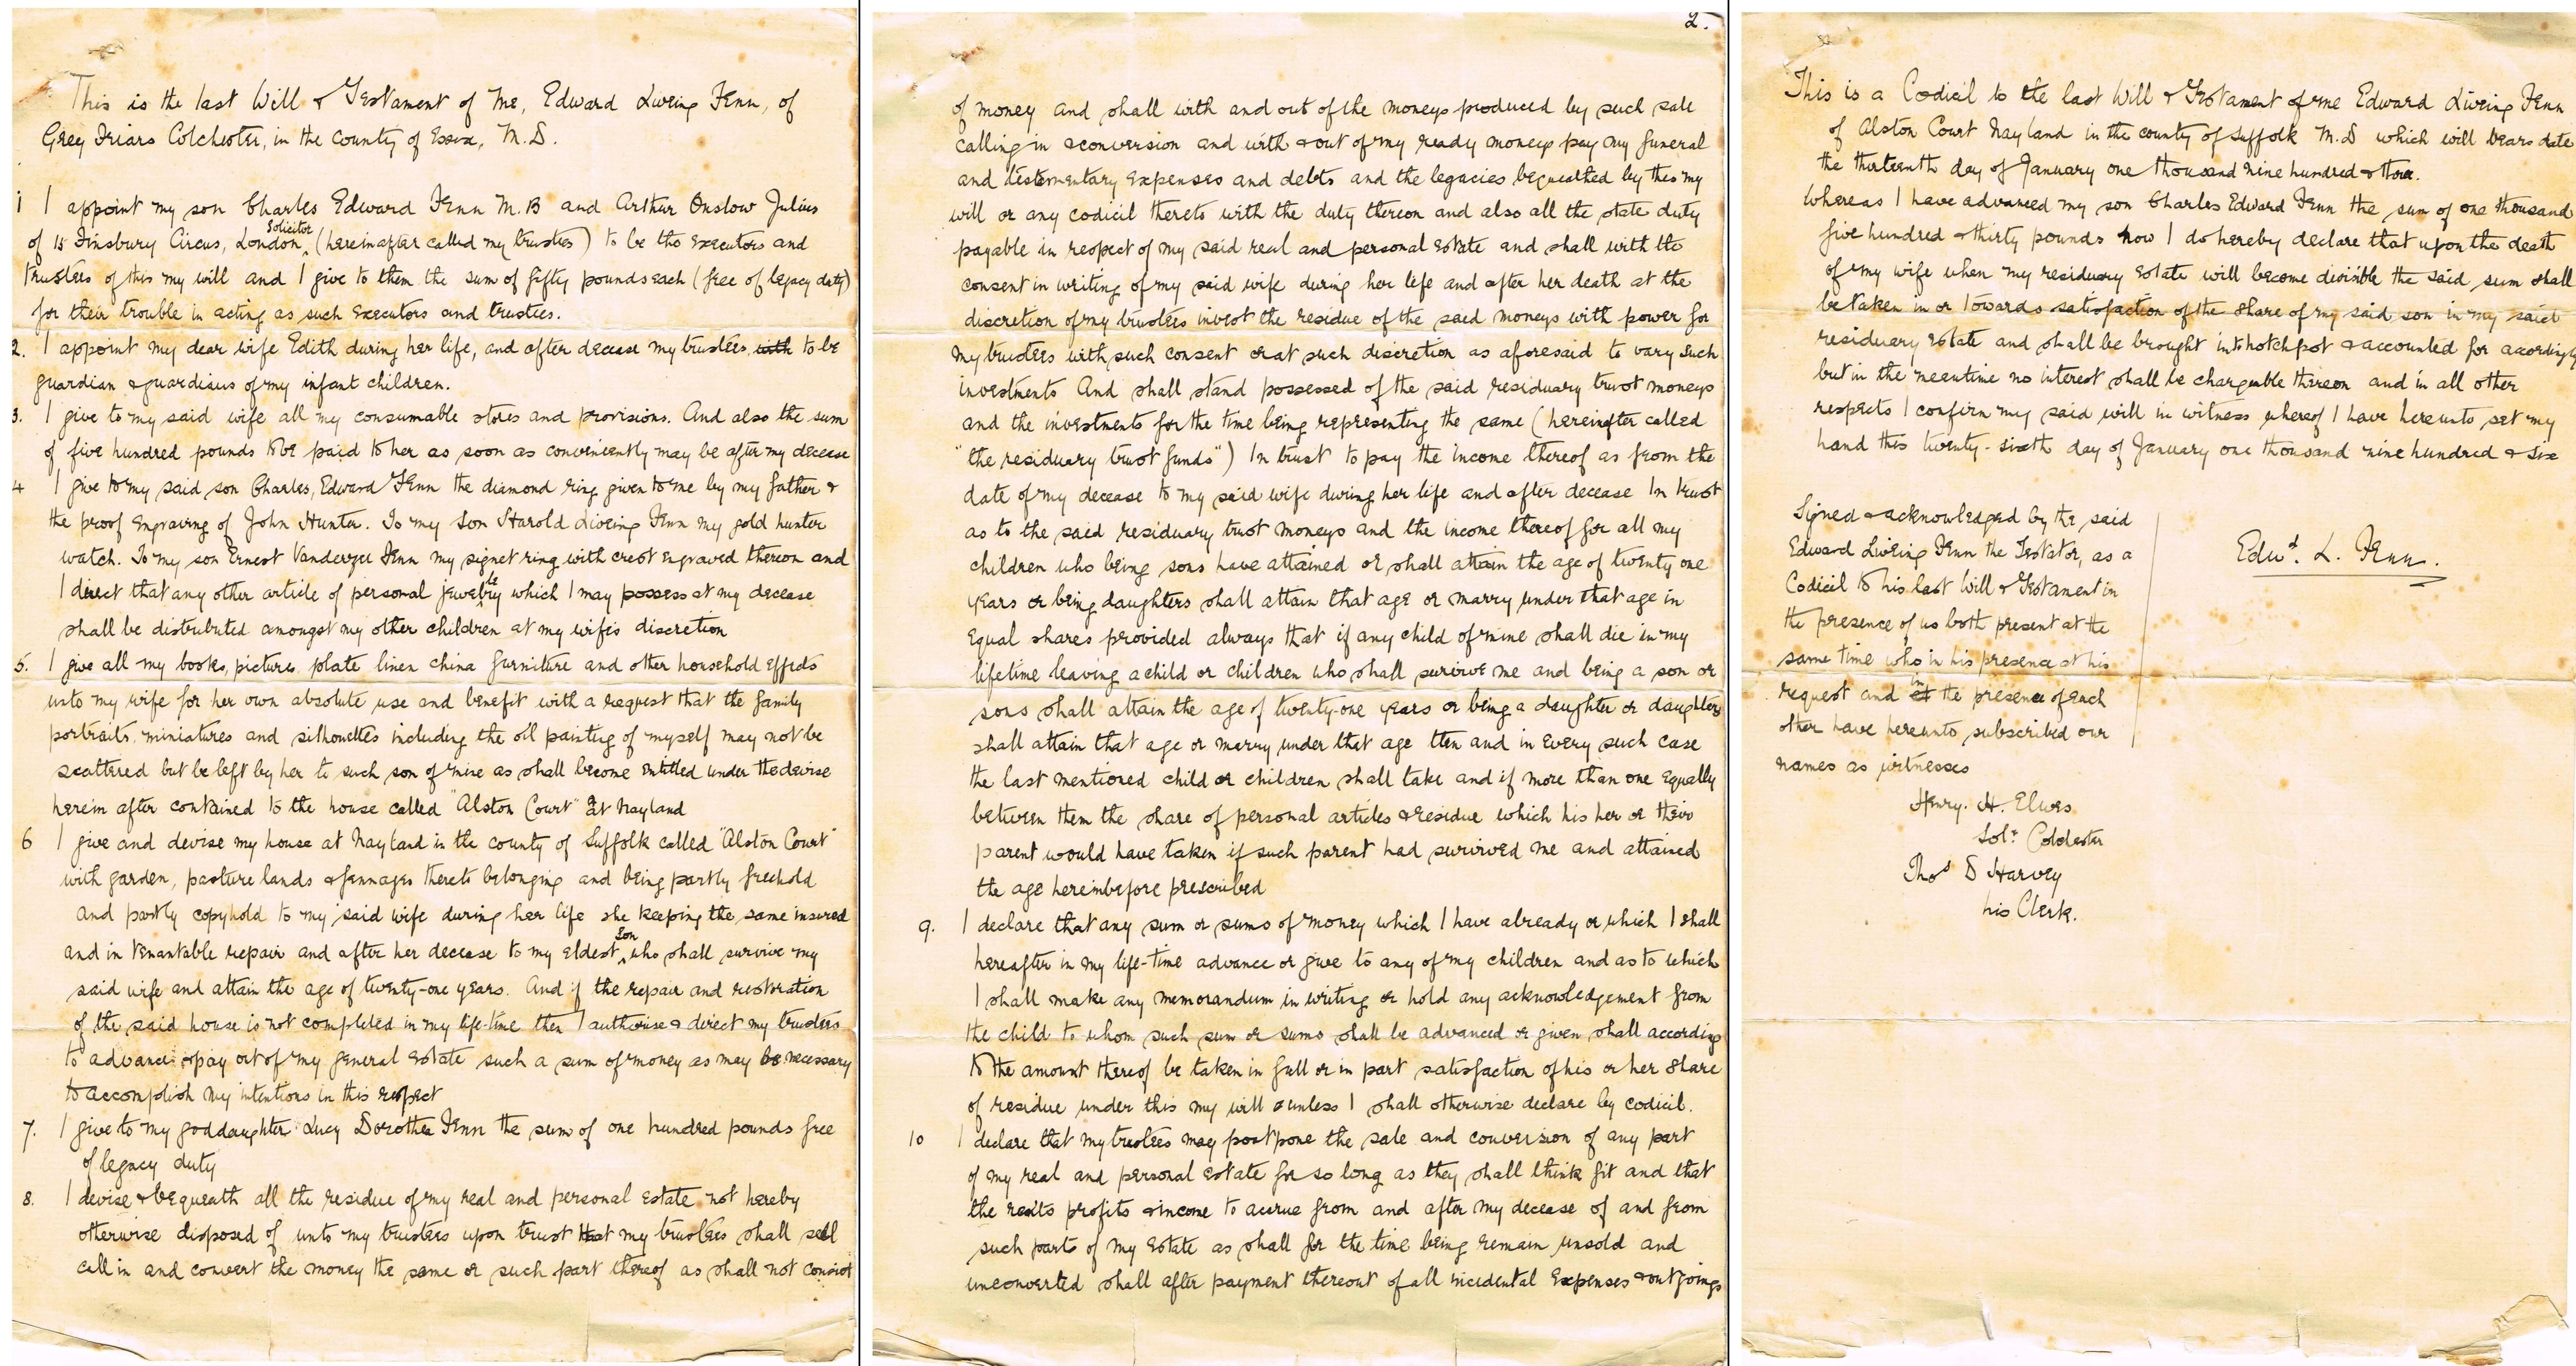 This is the last Will & Testament of me, Edward Liveing Fenn, of
Grey Friars Colchester, in the County of Essex, M.D.
1 I appoint my son Charles Edward Fenn M.B and Arthur Onslow Julius
of 15 Finsbury Circus, London, Solicitor (hereinafter called my trustees) to be the executors and
trustees of this my will and I give to them the sum of fifty pounds each (free of legacy duty)
for their trouble in acting as such executors and trustees.
2. I appoint my dear wife Edith during her life, and after decease my trustees, to be
guardian & guardians of my infant children.
3. I give to my said wife all my consumable stores and provisions. And also the sum
of five hundred pounds to be paid to her as soon as conveniently may be after my decease
4 I give to my said son Charles, Edward Fenn the diamond ring given to me by my father &
the proof engraving of John Hunter. To my son Harold Liveing Fenn my gold hunter
watch. To my son Ernest Vanderzee Fenn my signet ring with crest engraved thereon and
I direct that any other article of personal jewellery which I may possess at my decease
shall be distributed amongst my other children at my wife's discretion
5. I give all my books, pictures, plate linen china furniture and other household effects
unto my wife for her own absolute use and benefit with a request that the family
portraits, miniatures and silhouettes including the oil painting of myself may not be
scattered but be left by her to such son of mine as shall become entitled under the devise
herein after contained to the house called "Alston Court" at Nayland
6 I give and devise my house at Nayland in the county of Suffolk called "Alston Court"
with garden, pasture lands & thereto belonging and being partly freehold
and partly copyhold to my said wife during her life she keeping the same insured
and in tenantable repair and after her decease to my eldest son who shall survive my
said wife and attain the age of twenty-one years. And if the repair and restoration
of the said house is not completed in my life-time then I authorise & direct my trustees
to advance & pay out of my general estate such a sum of money as may be necessary
to accomplish my intentions in this respect
7. I give to my goddaughter Lucy Dorothea Fenn the sum of one hundred pounds free
of legacy duty
8. I devise & bequeath all the residue of my real and personal estate not hereby
otherwise disposed of unto my trustees upon trust that my trustees shall sell
call in and convert the money the same or such part thereof as shall not consist
2.
of money and shall with and out of the moneys produced by such sale
calling in & conversion and with & out of my ready moneys pay my funeral
and testementary expenses and debts and the legacies bequeathed by this my
will or any codicil thereto with the duty thereon and also all the state duty
payable in respect of my said real and personal estate and shall with the
consent in writing of my said wife during her life and after her death at the
discretion of my trustees invest the residue of the said moneys with power for
my trustees with such consent or at such discretion as aforesaid to vary such
investments And shall stand possessed of the said residuary trust moneys
and the investments for the time being representing the same (hereinafter called
"the residuary trust funds") In trust to pay the income thereof as from the
date of my decease to my said wife during her life and after decease In trust
as to the said residuary trust moneys and the income thereof for all my
children who being sons have attained or shall attain the age of twenty one
years or being daughters shall attain that age or marry under that age in
equal shares provided always that if any child of mine shall die in my
lifetime leaving a child or children who shall survive me and being a son or
sons shall attain the age of twenty-one years or being a daughter or daughters
shall attain that age or marry under that age then and in every such case
the last mentioned child or children shall take and if more than one equally
between them the share of personal articles & residue which his her or their
parent would have taken if such parent had survived me and attained
the age hereinbefore prescribed
9. I declare that any sum or sums of money which I have already or which I shall
hereafter in my life-time advance or give to any of my children and as to which
I shall make any memorandum in writing or hold any acknowledgement from
the child to whom such sum or sums shall be advanced or given shall according
to the amount thereof be taken in full or in part satisfaction of his or her share
of residue under this my will unless I shall otherwise declare by codicil.
10 I declare that my trustees may postpone the sale and conversion of any part
of my real and personal estate for so long as they shall think fit and that
the rents profits & income to accrue from and after my decease of and from
such parts of my estate as shall for the time being remain unsold and
unconverted shall after payment thereout of all incidental expenses & outgoings
This is a Codicil to the last Will & Testament of me Edward Liveing Fenn
of Alston Court Nayland in the county of Suffolk M.D which will bears date
the thirteenth day of January one thousand nine hundred & three.
Whereas I have advanced my son Charles Edward Fenn the sum of one thousand
five hundred & thirty pounds now I do hereby declare that upon the death
of my wife when my residuary estate will become divisible the said sum shall
be taken in or towards satisfaction of the share of my said son in my said
residuary estate and shall be brought into hotchpot & accounted for accordingly
but in the meantime no interest shall be chargeable thereon and in all other
respects I confirm my said will in witness whereof I have hereunto set my
hand this twenty-sixth day of January one thousand nine hundred & six
Signed & acknowledged by the said
Edward Liveing Fenn the Testator, as a
Codicil to his last Will & Testament in
the presence of us both present at the
same time who in his presence at his
request and in the presence of each
other have hereunto subscribed our
names as witnesses
Edwd. L. Fenn.
Henry. H. Elwes
Solr. Colchester
Thos D Harvey
his Clerk.